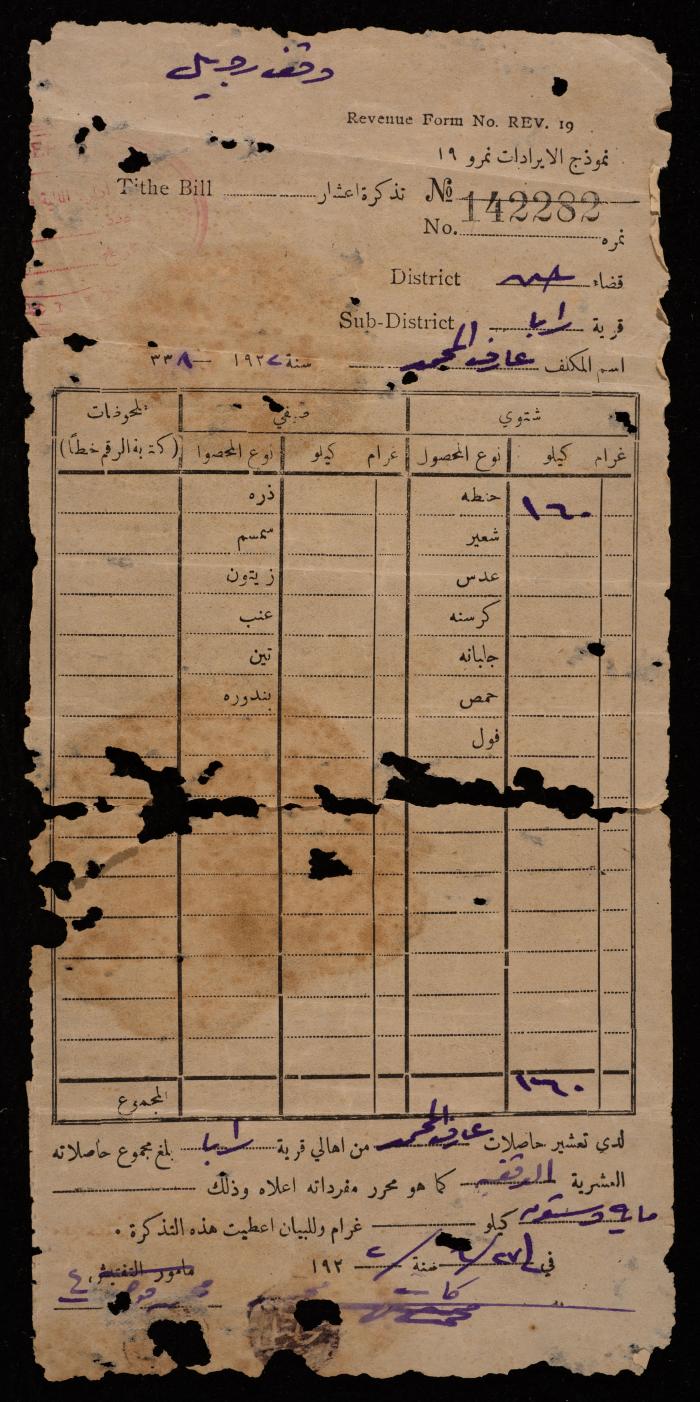 وقف
Revenue Form No. REV. 19
نموذج الايرادات نمرو ١٩
Tithe Bill تذكرة اعشار № 142282
No. نمره
District قضاء جنين
Sub-District قرية رابا
اسم المكلف عارف المحمد سنة ١٩٢٢ ٣٣٨
شتوي صيفي ملحوضات
غرام كيلو نوع المحصول غرام كيلو نوع المحصول (كتابة الرقم خطاً)
١٦٠ حنطه ذره
شعير سمسم
عدس زيتون
كرسنه عنب
جلبانه تين
حمص بندوره
فول
١٦٠ المجموع
لدى تعشير حاصلات عارف المحمد من اهالي قرية رابا بلغ مجموع حاصلاته
العشرية كما هو محرر مفرداته اعلاه وذلك
ماية وستون كيلو غرام وللبيان اعطيت هذه التذكرة .
في ٢٧ سنة ١٩٢٢
مامور التفتيش
كاتب